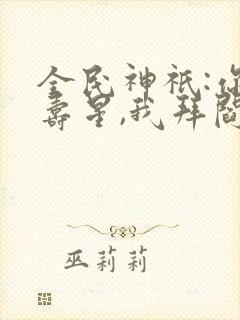 全民神祇:你
寿星,我拜阎
巫莉莉